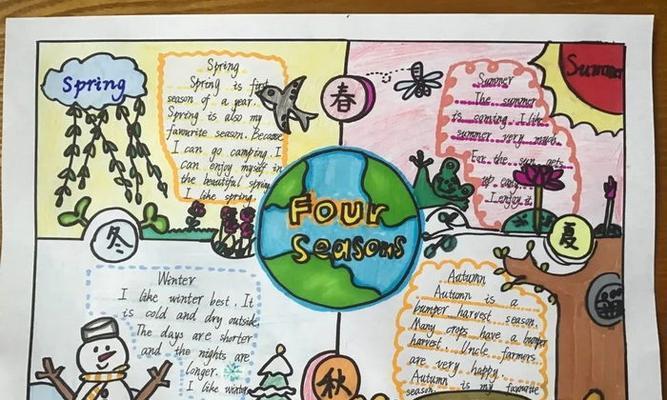 Spring
Spring
Spring is first
season of a year.
Spring is also my
favourite season. Because
I can go camping. I
can enjoy myself in
the beautiful spring
I like spring.
春
Summer
Summer
The summer
is coming. I like
summer very much.
For the sun gets
up early.
I enjoy it.
Four
Seasons
冬
夏
Winter
I like winter best. It
is cold and dry outside.
The days are shorter
and the nights are
longer.
I like winter
秋
Autumn
Autumn is a
bumper harvest season.
Many crops have a bumper
harvest. Uncle farmers
are very happy.
Autumn is my favourite
season.